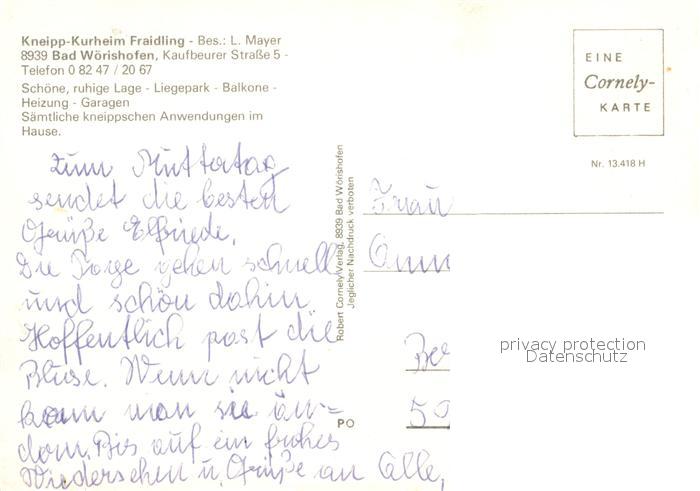 Kneipp-Kurheim Fraidling - Bes.: L. Mayer
8939 Bad Wörishofen, Kaufbeurer Straße 5 -
Telefon 0 82 47 / 20 67
Schöne, ruhige Lage - Liegepark - Balkone -
Heizung - Garagen
Sämtliche kneippschen Anwendungen im
Hause.
Zum Muttertag
sendet die besten
Grüße Elfriede.
Die Tage gehen schnell
und schön dahin.
Hoffentlich past die
Bluse. Wenn nicht
kann man sie än=
dern. Bis auf ein frohes
Wiedersehen u. Grüße an Alle,
Robert Cornely Verlag, 8939 Bad Wörishofen
Jeglicher Nachdruck verboten
EINE
Cornely-
KARTE
Nr. 13.418 H
Frau
PO
50
privacy protection
Datenschutz